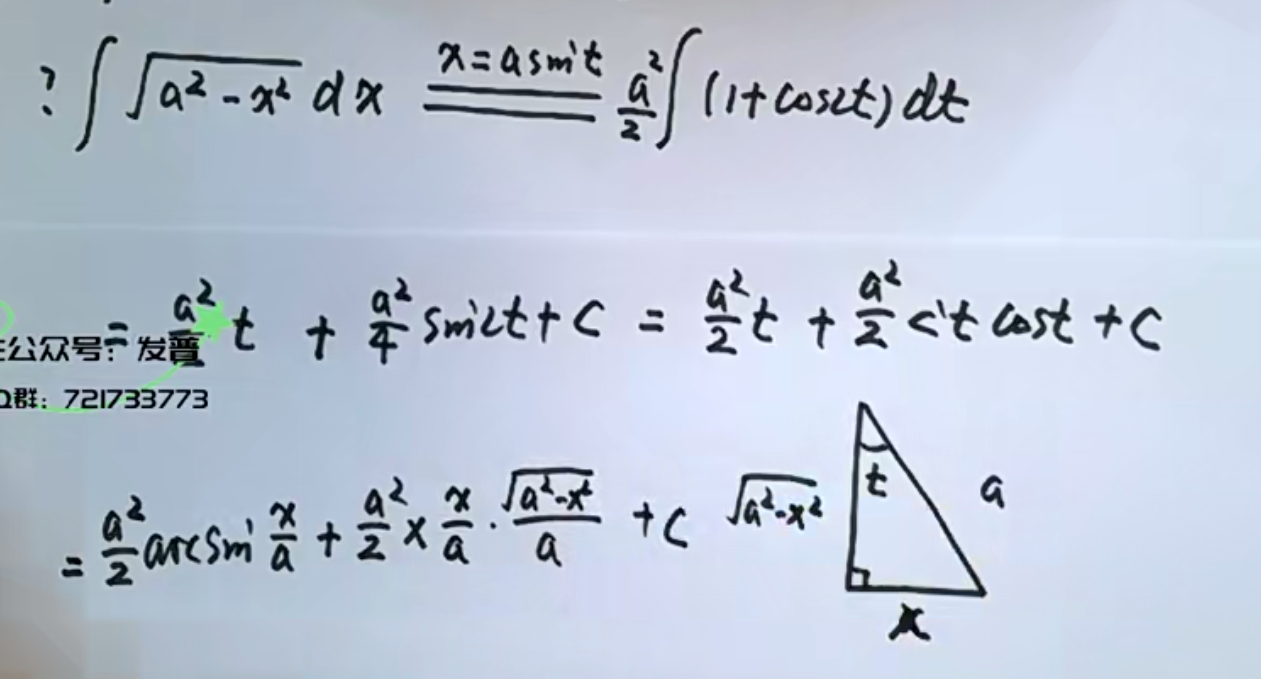 ? ∫ √(a² - x²) dx  x = a sin t  a²/2 ∫ (1 + cos2t) dt
= a²/2 t + a²/4 sin2t + C = a²/2 t + a²/2 t cost + C
公众号：发普
群：721733773
= a²/2 arcsin x/a + a²/2 × x/a · √(a²-x²)/a + C
√(a²-x²)
t
a
x